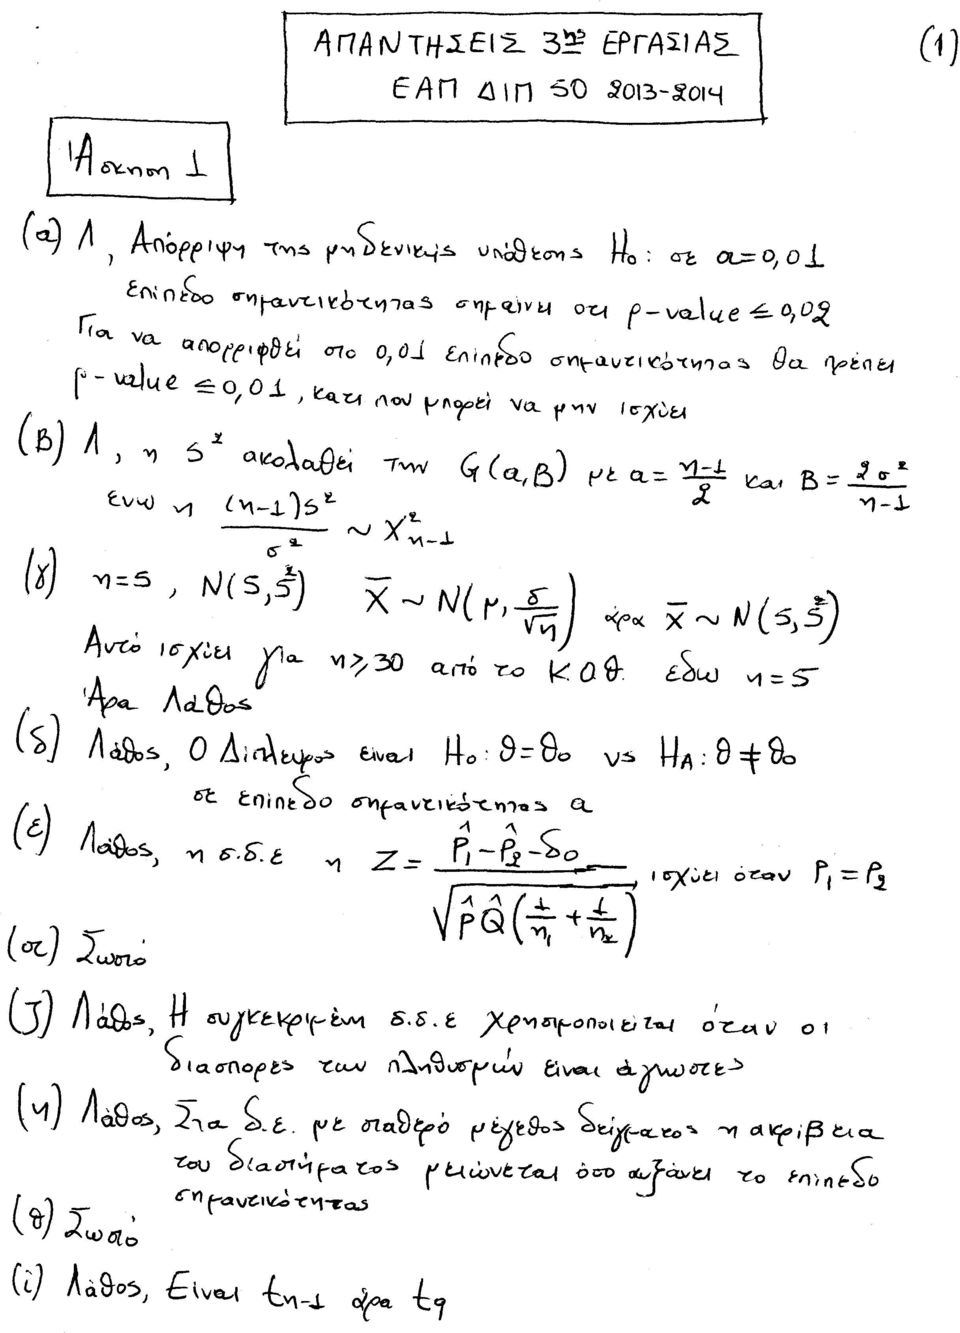 ΑΠΑΝΤΗΣΕΙΣ 3ης ΕΡΓΑΣΙΑΣ
(1)
ΕΑΠ ΔΙΠ 50 2013-2014
Άσκηση 1
(α) Λ, Απόρριψη της μηδενικής υπόθεσης H₀: σε α=0,01
επίπεδο σημαντικότητας σημαίνει οτι p-value ≤ 0,02
Για να απορριφθεί στο 0,01 επίπεδο σημαντικότητας θα πρέπει
p-value ≤ 0,01, κατι που μπορεί να μην ισχύει
(Β) Λ, η S² ακολαθεί την G(α,Β) με α = (n-1)/2 και Β = 2σ²/(n-1)
ενω η (n-1)S²/σ² ~ X²ₙ₋₁
(γ) n=5, N(5,5²) X̄ ~ N(μ, σ/√n) άρα X̄ ~ N(5,5²)
Αυτό ισχύει για n≥30 από το Κ.Ο.Θ. εδω n=5
Άρα Λάθος
(δ) Λάθος, Ο Δίπλευρος είναι H₀: θ=θ₀ vs H_A: θ≠θ₀
σε επίπεδο σημαντικότητας α
(ε) Λάθος, η σ.δ.ε η Z = (P̂₁-P̂₂-δ₀)/√(P̂Q̂(1/n₁+1/n₂)), ισχύει όταν P₁=P₂
(στ) Σωστό
(ζ) Λάθος, Η συγκεκριμένη σ.δ.ε χρησιμοποιείται όταν οι
διασπορες των πληθυσμών είναι άγνωστες
(η) Λάθος, Στα δ.ε. με σταθερό μέγεθος δείγματος η ακρίβεια
του διαστήματος μειώνεται όσο αυξάνει το επίπεδο
σημαντικότητας
(θ) Σωστό
(i) Λάθος, Είναι tₙ₋₁ άρα t₉